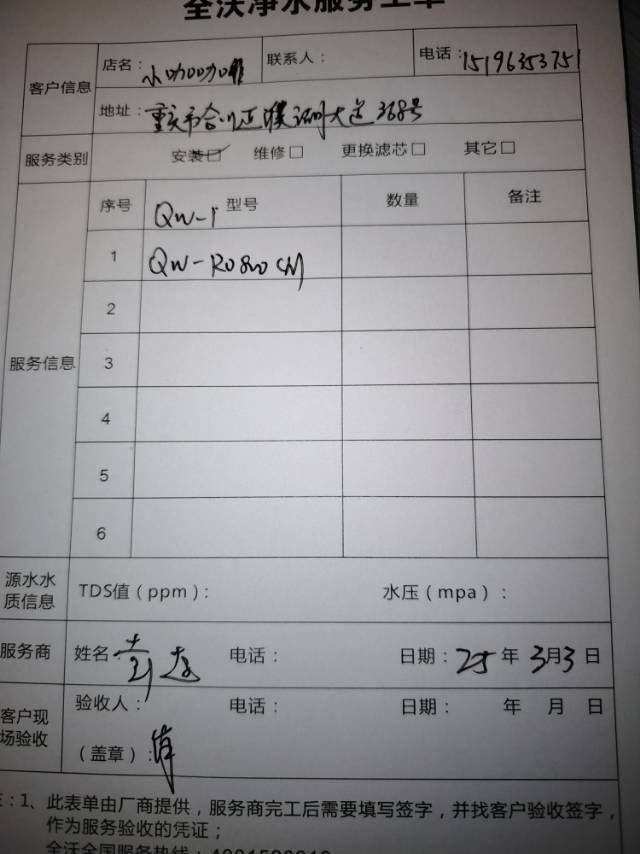 全沃净水服务工单
客户信息 店名：小咖咖啡 联系人： 电话：15196353751
地址：重庆市合川区濮湖大道368号
服务类别 安装☑ 维修□ 更换滤芯□ 其它□
服务信息 序号 QW-1 型号 数量 备注
1 QW-RO800CM
2
3
4
5
6
源水水质信息 TDS值（ppm）： 水压（mpa）：
服务商 姓名： 电话： 日期：25年3月3日
客户现场验收 验收人： 电话： 日期： 年 月 日
（盖章）：
注：1、此表单由厂商提供，服务商完工后需要填写签字，并找客户验收签字，
作为服务验收的凭证；
全沃全国服务热线：